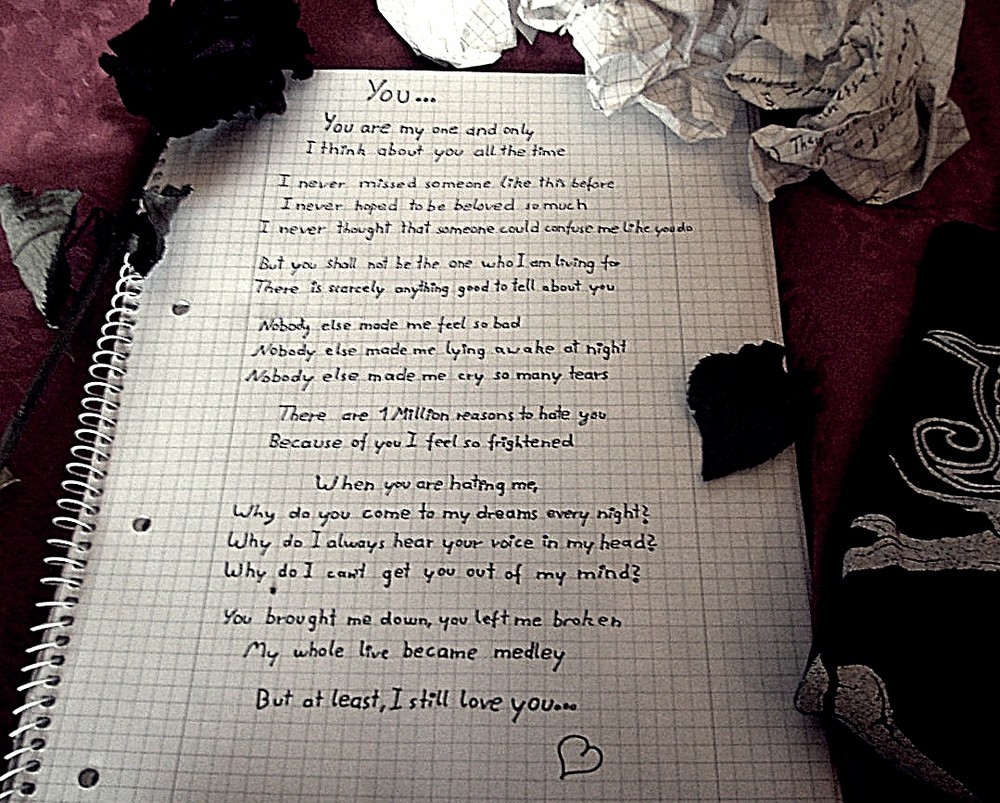 You...
You are my one and only
I think about you all the time
I never missed someone like this before
I never hoped to be beloved so much
I never thought that someone could confuse me like you do
But you shall not be the one who I am living for
There is scarcely anything good to tell about you
Nobody else made me feel so bad
Nobody else made me lying awake at night
Nobody else made me cry so many tears
There are 1 Million reasons to hate you
Because of you I feel so frightened
When you are hating me,
Why do you come to my dreams every night?
Why do I always hear your voice in my head?
Why do I can't get you out of my mind?
You brought me down, you left me broken
My whole live became medley
But at least, I still love you...